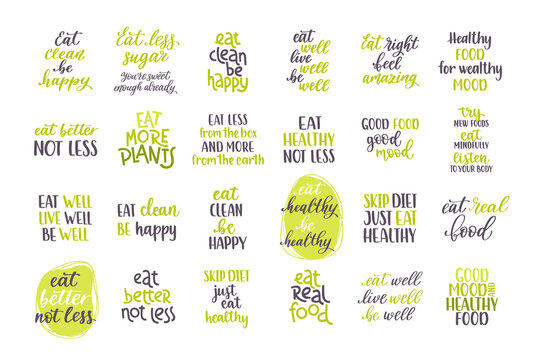 Eat
clean
be
happy
Eat less
sugar
You're sweet
enough already
eat
clean
be
happy
eat well
live well
be well
Eat right
feel
amazing
Healthy
FOOD
for wealthy
MOOD
eat better
NOT LESS
EAT
MORE
PLANTS
EAT LESS
from the box
AND MORE
from the earth
EAT
HEALTHY
NOT LESS
GOOD FOOD
good
mood
try
NEW FOODS
eat
MINDFULLY
listen
TO YOUR BODY
EAT WELL
LIVE WELL
BE WELL
EAT clean
BE happy
eat
CLEAN
be
HAPPY
eat
healthy
be
healthy
SKIP DIET
JUST EAT
HEALTHY
eat real
food
eat
better
not less
eat
better
not less
SKIP DIET
just
eat
healthy
eat
Real
food
eat well
live well
be well
GOOD
MOOD AND
HEALTHY
FOOD